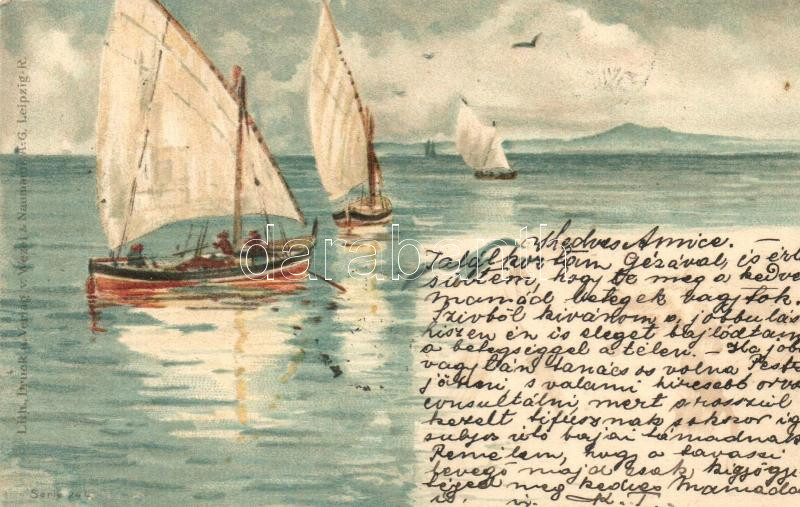 Lith. Druck u. Verlag v. Wezel & Naumann A.-G. Leipzig-R.
darabanth
Kedves Annice.
Találkoztam Gézával, és ért
sültem, hogy te meg a kedve
Mamád betegek vagytok.
Szivből kivánom a jobbulás
hiszen én is eleget bajlódtam
a betegséggel a télen. – Ha job
vagytán tanácsos volna Pest
jönni s valami hiresebb orvo
consultálni mert a rosszúl
kezelt tifusznak sokszor ig
sulyos utó bajai támadnak
Remélem, hogy a tavaszi
levegő majd csak kigyógyi
téged meg kedves Mamáda
is. K. T.
Serie 244